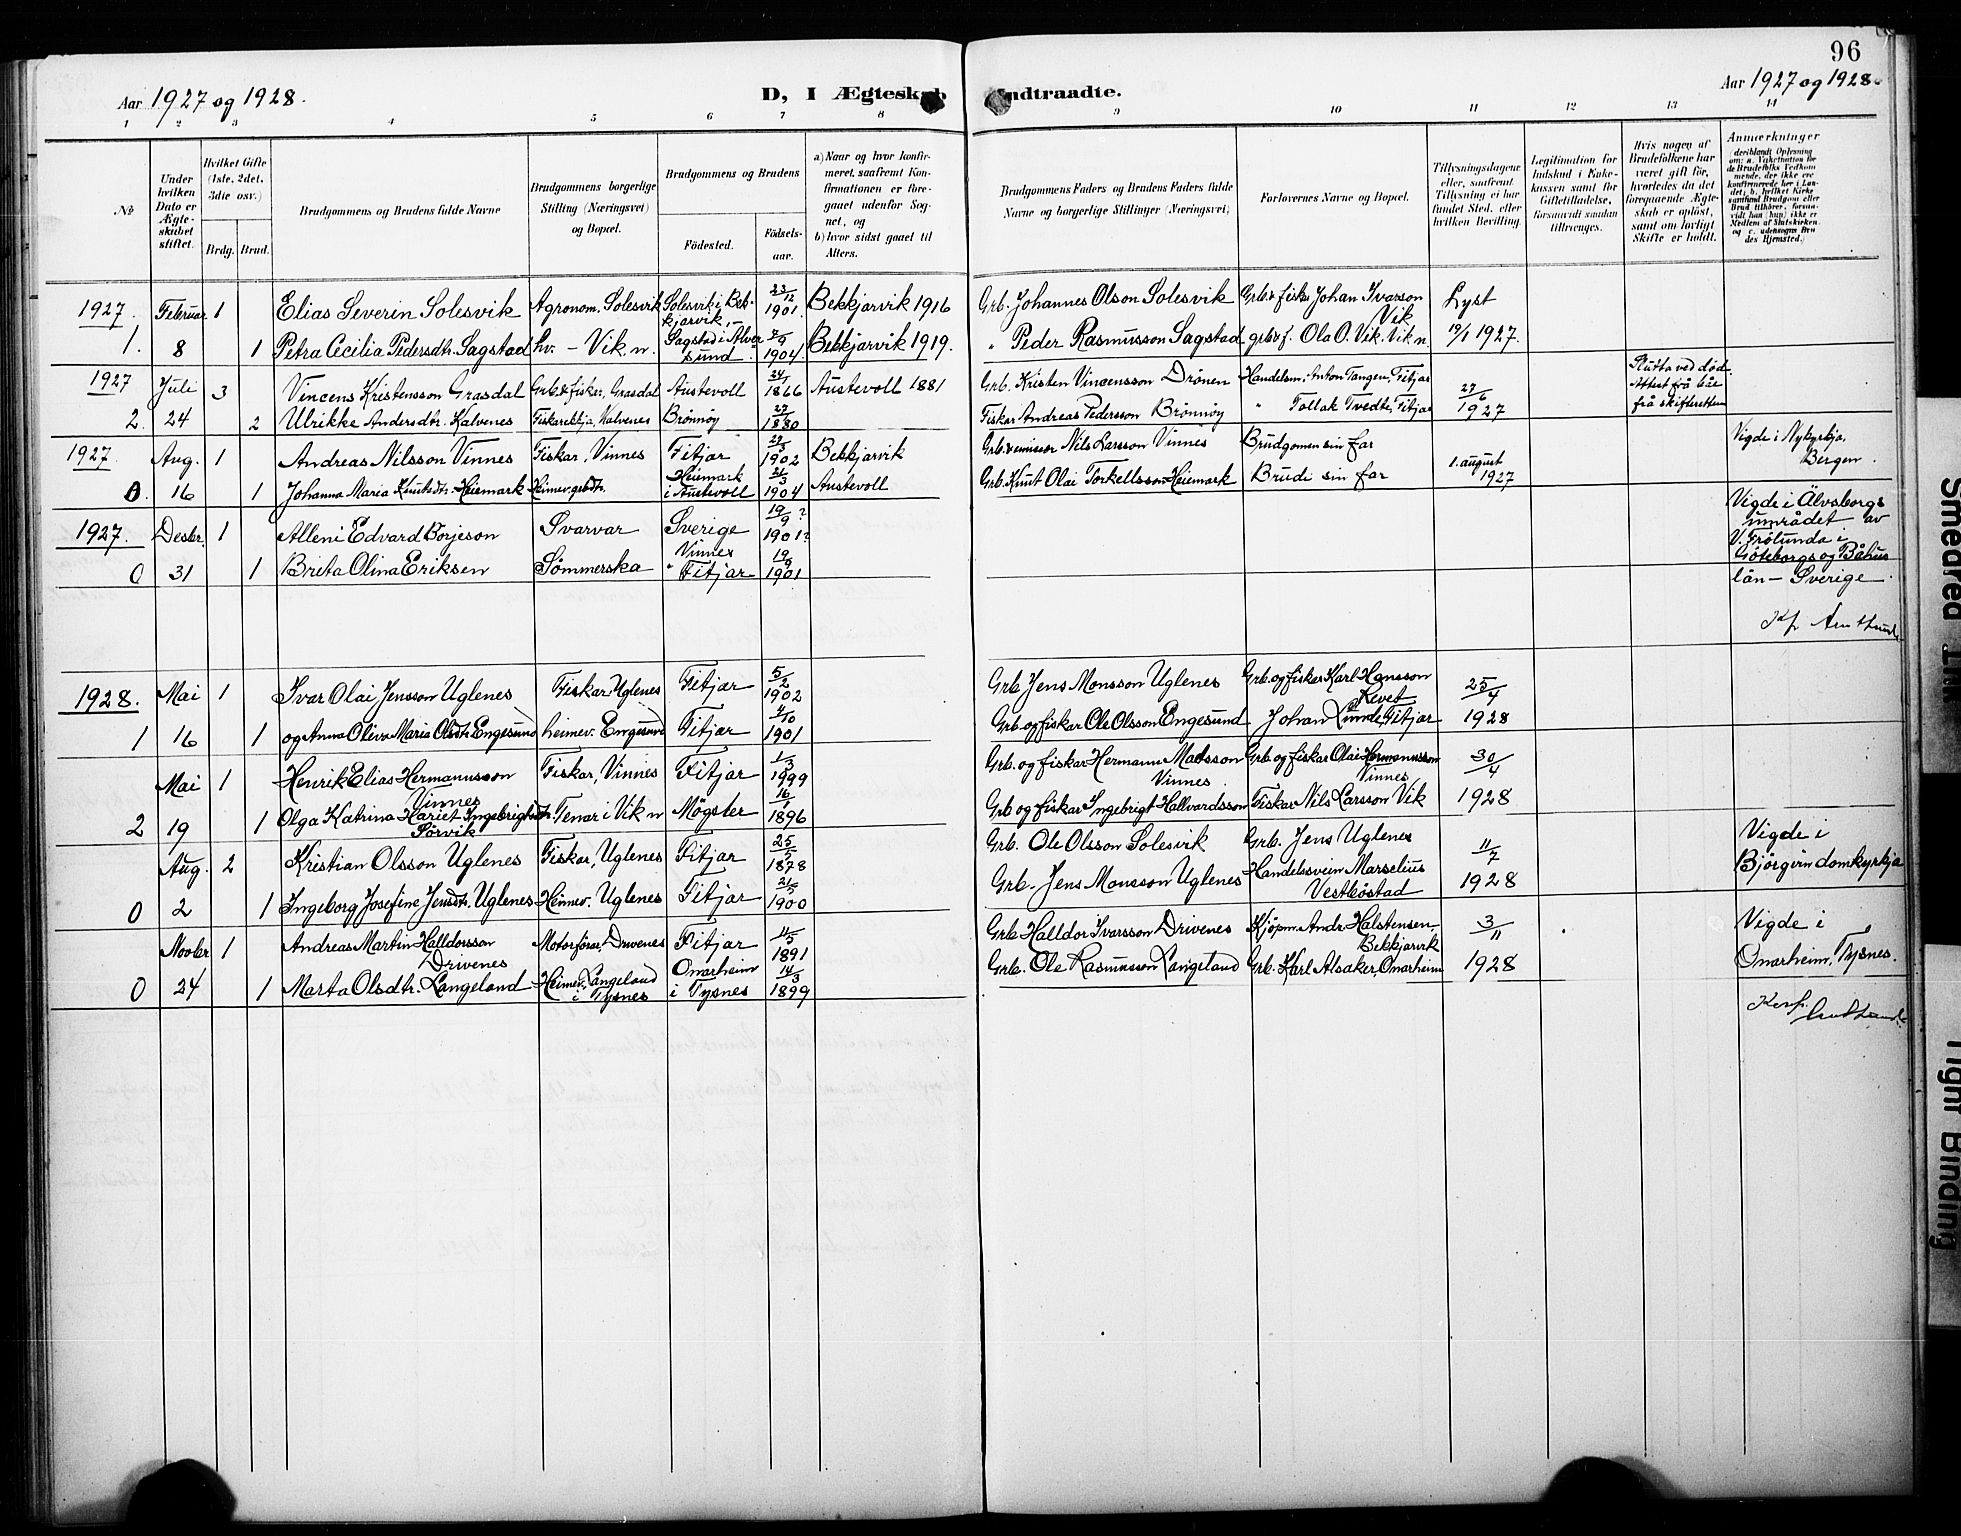 96
Aar 1927 og 1928.
D, I Ægteskab Indtraadte.
Aar 1927 og 1928.
1 2 3 4 5 6 7 8 9 10 11 12 13 14
№
Under hvilken Dato er Ægteskabet stiftet.
Hvilket Gifte (1ste, 2det, 3die osv.)
Brdg. Brud.
Brudgommens og Brudens fulde Navne
Brudgommens borgerlige Stilling (Næringsvei) og Bopæl.
Brudgommens og Brudens
Fødested. Fødselsaar.
a) Naar og hvor konfirmeret, saafremt Konfirmationen er foregaaet udenfor Sognet, og
b) hvor sidst gaaet til Alters.
Brudgommens Faders og Brudens Faders fulde Navne og borgerlige Stillinger (Næringsvei)
Forlovernes Navne og Bopæl.
Tillysningsdagene eller, saafremt Tillysning ei har fundet Sted, efter hvilken Bevilling.
Legitimation for Indskud i Enkekassen samt for Giftetilladelse, forsaavidt saadan tiltrænges.
Hvis nogen af Brudefolkene har været gift før, hvorledes da det foregaaende Ægteskab er opløst, samt om lovligt Skifte er holdt.
Anmærkninger
(deriblandt Oplysning om: a. Vakcination for de Brudefolks Vedkommende, der ikke ere konfirmerede her i Landet; b. hvilket Kirkesamfund Brudgom eller Brud tilhører, forsaavidt han (hun) ikke er Medlem af Statskirken, og c. udensogns Brudes Hjemsted.)
1927. Februar 1 Elias Severin Solesvik Agronom. Solesvik Solesvik i Bekkjarvik 23/12 1901. Bekkjarvik 1916 Grb. Johannes Olson Solesvik Grb. & fisk. Johan Ivarson Vik Lyst
1. 8 1 Petra Cecilia Pedersdtr. Sagstad hv. - Vik. n. Sagstad i Alversund 1904 Bekkjarvik 1919. " Peder Rasmusson Sagstad grb & f. Ola O. Vik. Vik n. 19/1 1927.
1927 Juli 3 Vincens Kristensson Grasdal Grb. & fisker, Grasdal Austevoll 24/1 1866 Austevoll 1881 Grb. Kristen Vincensson Drönen Handelsm. Anton Tangen, Fitjar 27/6 1927 Slutta ved död. Attest frå
2. 24 2 Ulrikke Andersdtr. Kalvenes Fiskarekkja, Kalvenes Brønnøy 1880 Fisker Andreas Pedersson Brönnöy " Tollak Tvedte, Fitjar frå skifteretten
1927. Aug. 1 Andreas Nilsson Vinnes Fiskar, Vinnes Fitjar 1902 Bekkjarvik Nils Larsson Vinnes Brudgomen sin far 1. august 1927 Vigde i Nykyrkja, Bergen.
0. 16 1 Johanna Maria Knutsdtr. Heiemark Heimev. grbdtr. Heiemark i Austevoll 1904 Austevoll Grb. Knut Olai Torkellsson Heiemark Brudi sin far
1927. Desbr. 1 Alleni Edvard Borjeson Svarvar Sverige 19/9? 1901? Vigde i Älvsborgs området av V. Frölunda i Göteborgs og Båhus län - Sverige.
0 31 1 Brita Olina Eriksen Sömmerska Vinnes " Fitjar 19/9 1901
1928. Mai 1 Ivar Olai Jensson Uglenes Fiskar, Uglenes Fitjar 5/2 1902 Grb. Jens Monsson Uglenes Grb. og fisker Karl Hansson 25/4 1928
1 16 1 og Anna Oliva Maria Olsdtr. Engesund heimev. Engesund Fitjar 4/10 1901 Grb. og fiskar Ole Olsson Engesund Johan Linde, Fitjar
Mai 1 Henrik Elias Hermannsson Vinnes Fiskar, Vinnes Fitjar 1/3 1899 Grb. og fiskar Hermann Madsson Vinnes Grb. og fiskar Olai Hermannsson Vinnes 30/4 1928
2 19 1 Olga Katrina Hariet Ingebrigtsdtr. Sörvik Tenar i Vik n Møgster 16/1 1896 Grb og fiskar Ingebrigt Hallvardsson Fiskar Nils Larsson Vik
Aug. 2 Kristian Olsson Uglenes Fiskar, Uglenes Fitjar 1878 Grb. Ole Olsson Solesvik Grb. Jens Uglenes 11/7 1928 Vigde i Bjørgvin domkyrkja
0 2 1 Ingeborg Josefine Jensdtr. Uglenes Heimev. Uglenes Fitjar 1900 Grb. Jens Monsson Uglenes Handelssvein Marselius Vestbøstad
Novbr 1 Andreas Martin Halldorsson Drivenes Motorförar, Drivenes Fitjar 11/5 1891 Grb Halldor Ivarsson Drivenes Kjöpm. Andr. Halstensen Bekkjarvik 3/11 1928 Vigde i Onarheim, Tysnes.
0 24 1 Marta Olsdtr. Langeland Heimev. Langeland i Tysnes Onarheim i Tysnes 14/3 1899 Grb. Ole Rasmusson Langeland Grb. Karl Alsaker, Onarheim
Smedred
Tight Binding